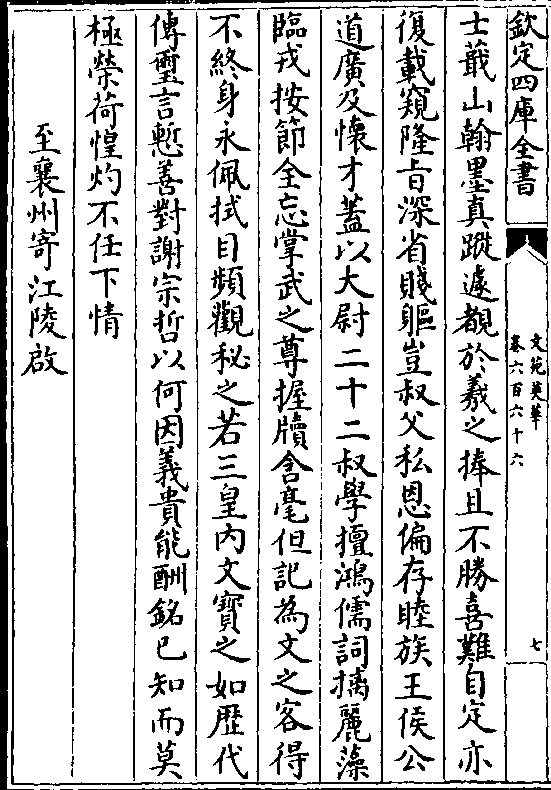 欽定四庫全書
文苑英華
卷六百六十六
七
士蕺山翰墨真蹤遽覩於羲之捧且不勝喜難自定亦
復載窺隆旨深省賤軀豈叔父私恩偏存睦族王侯公
道廣及懷才蓋以大尉二十二叔學擅鴻儒詞摛麗藻
臨戎按節全忘掌武之尊握牘含毫但記為文之客得
不終身永佩拭目頻觀秘之若三皇内文寶之如歴代
傳璽言慙善對謝宗哲以何因義貴能酬銘已知而莫
極榮荷惶灼不任下情
至襄州寄江陵啟